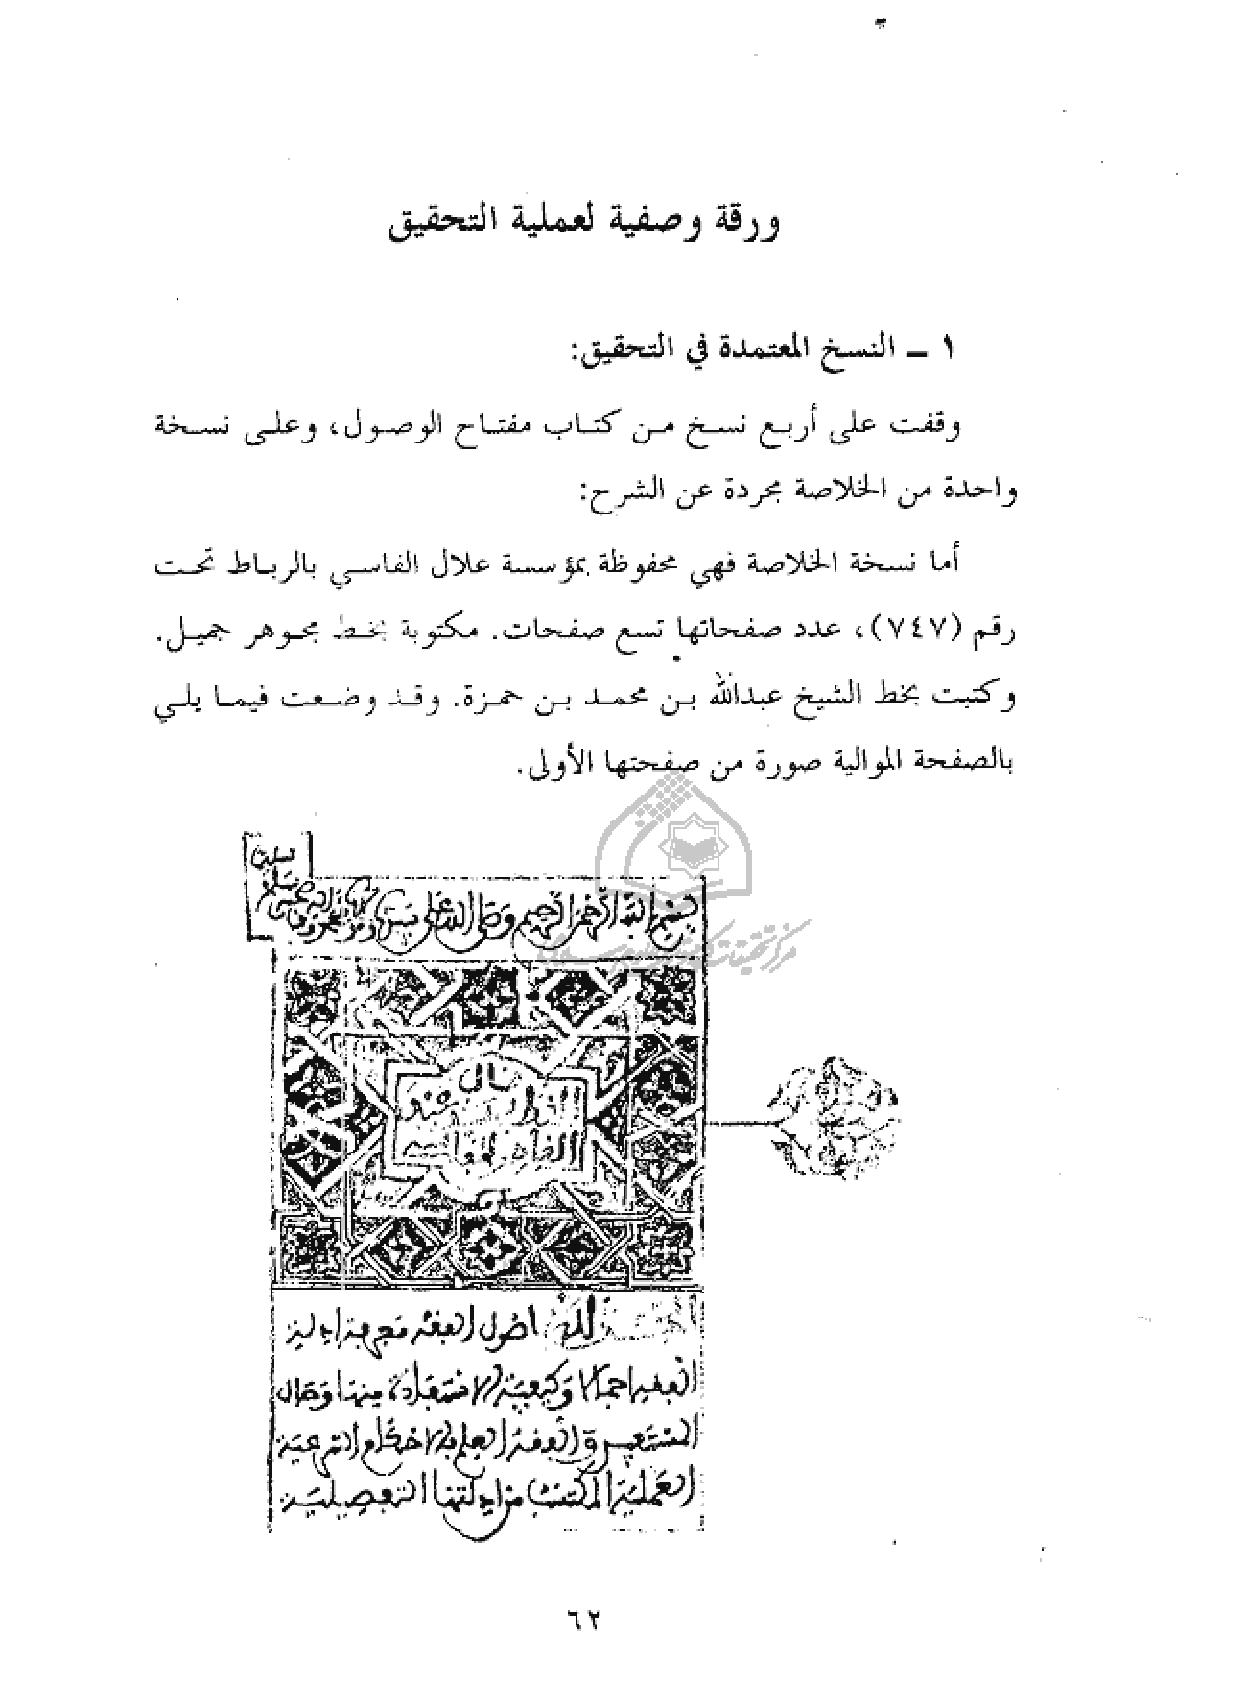 ورقة وصفية لعملية التحقيق
١ – النسخ المعتمدة في التحقيق:
وقفت على أربع نسخ من كتاب مفتاح الوصول، وعلى نسخة
واحدة من الخلاصة مجردة عن الشرح:
أما نسخة الخلاصة فهي محفوظة بمؤسسة علال الفاسي بالرباط تحت
رقم (٧٤٧)، عدد صفحاتها تسع صفحات. مكتوبة بخط مجوهر جميل.
وكتبت بخط الشيخ عبدالله بن محمد بن حمزة. وقد وضعت فيما يلي
بالصفحة الموالية صورة من صفحتها الأولى.
بسم الله الرحمن الرحيم وصلى الله على
قال
لله اصول الفقه معرفة ادلة
الفقه اجمالا وكيفية الاستفادة منها وحال
المستفيد والفقه العلم بالاحكام الشرعية
العملية المكتسب من ادلتها التفصيلية
٦٢